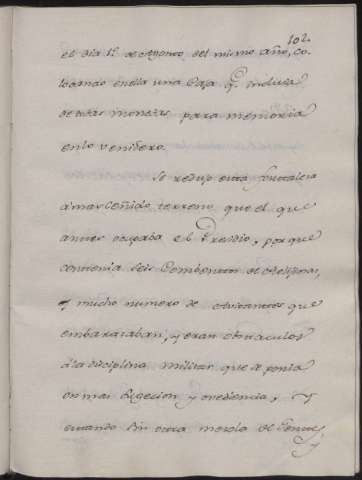 102.
el dia 1.º de Agosto del mismo año, co-
locando en ella una Caja q.e incluia
de estas monedas para memoria
en lo venidero.
Se redujo esta fortaleza
a mas ceñido terreno que el que
antes ocupaba el Presidio, porque
contenia seis Combentos de Religiosas,
y mucho numero de avitantes que
embarazaban, y eran obstaculos
a la disciplina militar que se ponia
en mas sugecion y obediencia, y
estando sin otra mezcla de Gentes
y